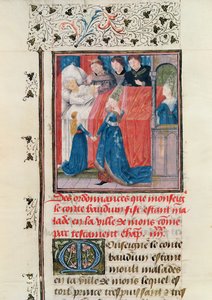 Des ordonnances que monseig
le conte bauduin fist estant ma
lade en la ville de mons come
par testament Chap. iiii.
Monseigne le conte
bauduin estant
moult malades
en la ville de mons lequel es
toit prince trespuissant & tres